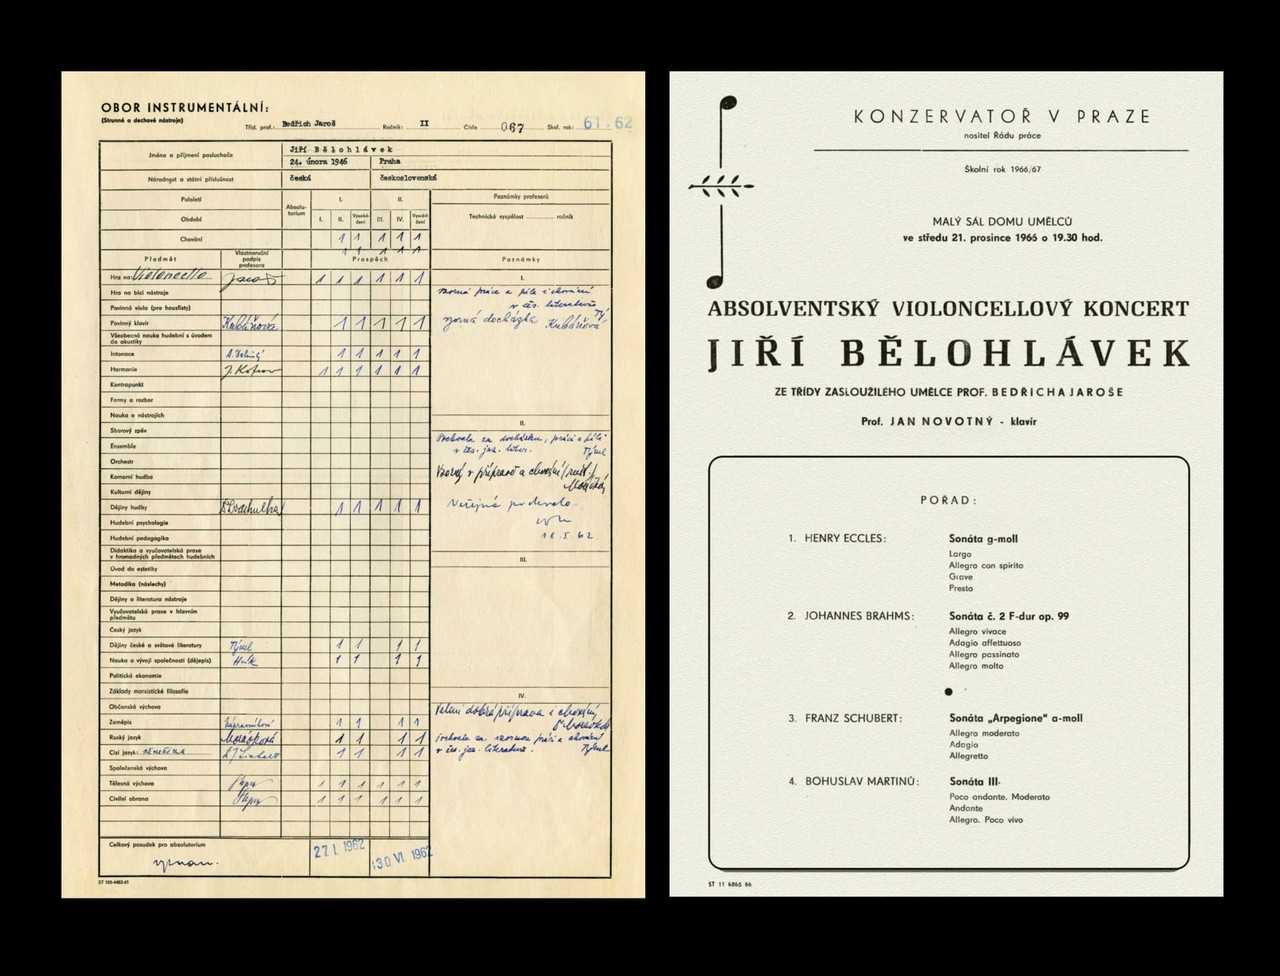 OBOR INSTRUMENTÁLNÍ:
(Strunné a dechové nástroje)
Tříd. prof.: Bedřich Jaroš Ročník: II Číslo 067 Škol. rok: 61-62
Jméno a příjmení posluchače Jiří Bělohlávek
24. února 1946 Praha
Národnost a státní příslušnost česká československá
Pololetí Absolutorium I. II. Poznámky profesorů
Období I. II. Vysvědčení III. IV. Vysvědčení Technická vyspělost ročník
Chování 1 1 1 1 1
Předmět Vlastnoruční podpis profesora Prospěch Poznámky
Hra na: Violoncello Jaroš 1 1 1 1 1 1 I.
Hra na bicí nástroje
Povinná viola (pro houslisty)
Povinný klavír Kubáňová 1 1 1 1 1 vzorná docházka Kubáňová
Všeobecná nauka hudební s úvodem do akustiky
Intonace 1 1 1 1 1
Harmonie 1 1 1 1 1 1
Kontrapunkt
Formy a rozbor
Nauka o nástrojích
Sborový zpěv II.
Ensemble
Orchestr
Komorní hudba
Kulturní dějiny
Dějiny hudby 1 1 1 1 1 Veřejná pochvala
Hudební psychologie
Hudební pedagogika 18.5.62
Didaktika a vyučovatelská praxe v hromadných předmětech hudebních III.
Úvod do estetiky
Metodika (náslechy)
Dějiny a literatura nástroje
Vyučovatelská praxe v hlavním předmětu
Český jazyk
Dějiny české a světové literatury 1 1 1 1
Nauka o vývoji společnosti (dějepis) 1 1 1 1
Politická ekonomie
Základy marxistické filosofie IV.
Občanská výchova Velmi dobrá příprava i chování
Zeměpis 1 1 1 1
Ruský jazyk 1 1 1 1
Cizí jazyk: němčina 1 1 1 1
Společenská výchova
Tělesná výchova 1 1 1 1 1 1
Civilní obrana 1 1 1 1 1 1
Celkový posudek pro absolutorium 27 I. 1962 30 VI. 1962
vyznam.
ST 103-4463-61
KONZERVATOŘ V PRAZE
nositel Řádu práce
Školní rok 1966/67
MALÝ SÁL DOMU UMĚLCŮ
ve středu 21. prosince 1966 o 19.30 hod.
ABSOLVENTSKÝ VIOLONCELLOVÝ KONCERT
JIŘÍ BĚLOHLÁVEK
ZE TŘÍDY ZASLOUŽILÉHO UMĚLCE PROF. BEDŘICHA JAROŠE
Prof. JAN NOVOTNÝ - klavír
POŘAD:
1. HENRY ECCLES: Sonáta g-moll
Largo
Allegro con spirito
Grave
Presto
2. JOHANNES BRAHMS: Sonáta č. 2 F-dur op. 99
Allegro vivace
Adagio affettuoso
Allegro passinato
Allegro molto
3. FRANZ SCHUBERT: Sonáta „Arpegione" a-moll
Allegro moderato
Adagio
Allegretto
4. BOHUSLAV MARTINŮ: Sonáta III.
Poco andante. Moderato
Andante
Allegro. Poco vivo
ST 11 6865 66